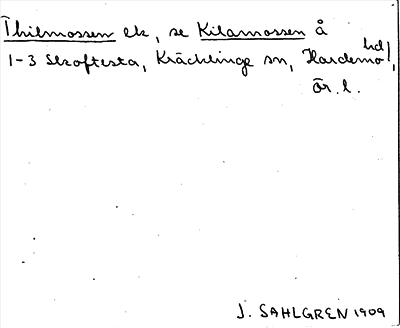 Thilmossen ek, se Kilamossen å
1-3 Skoftesta, Kräcklinge sn, Hardemo hd,
Ör. l.
J. SAHLGREN 1909